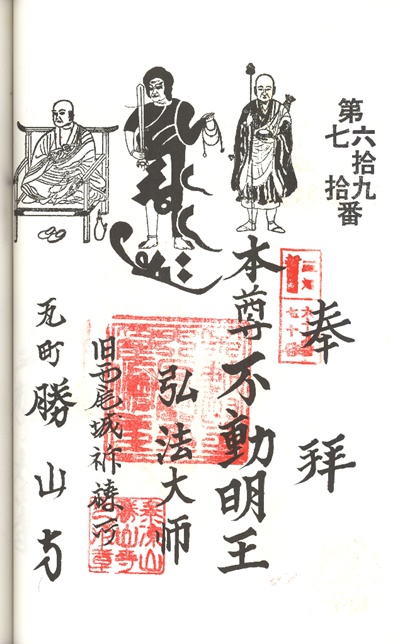 第六拾九
七拾番
奉拝
本尊不動明王
弘法大師
旧西尾城祈祷所
瓦町 勝山寺